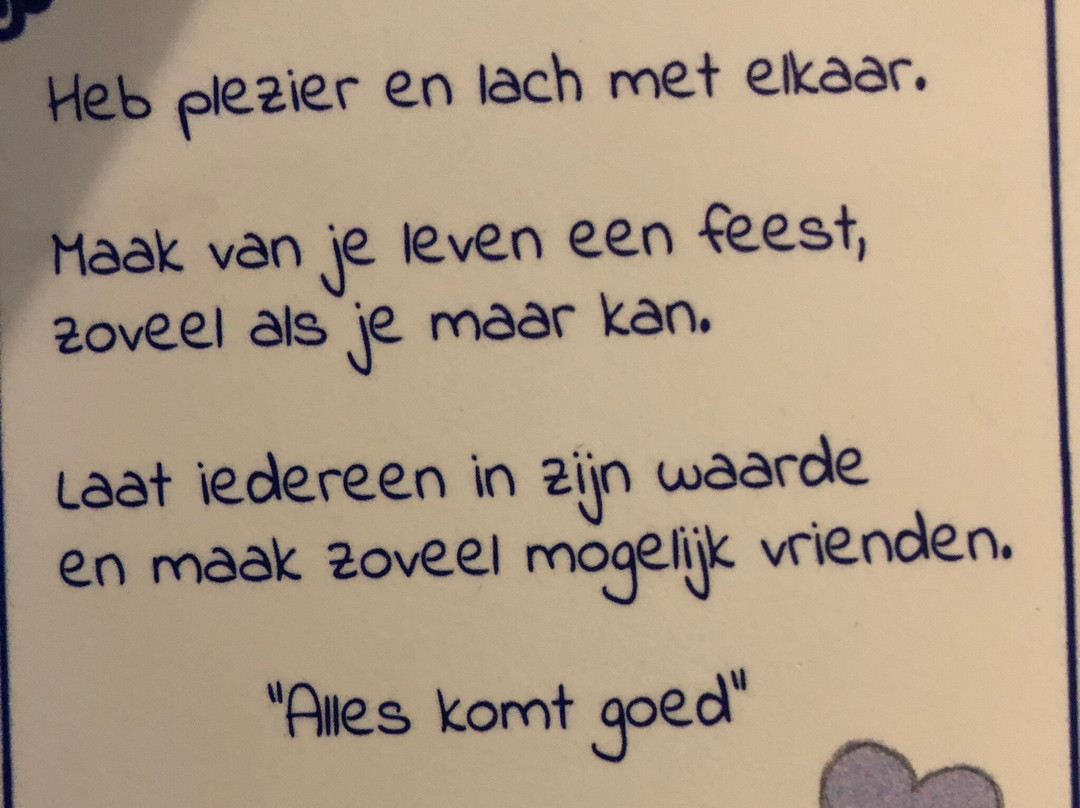 Heb plezier en lach met elkaar.
Maak van je leven een feest,
zoveel als je maar kan.
Laat iedereen in zijn waarde
en maak zoveel mogelijk vrienden.
"Alles komt goed"